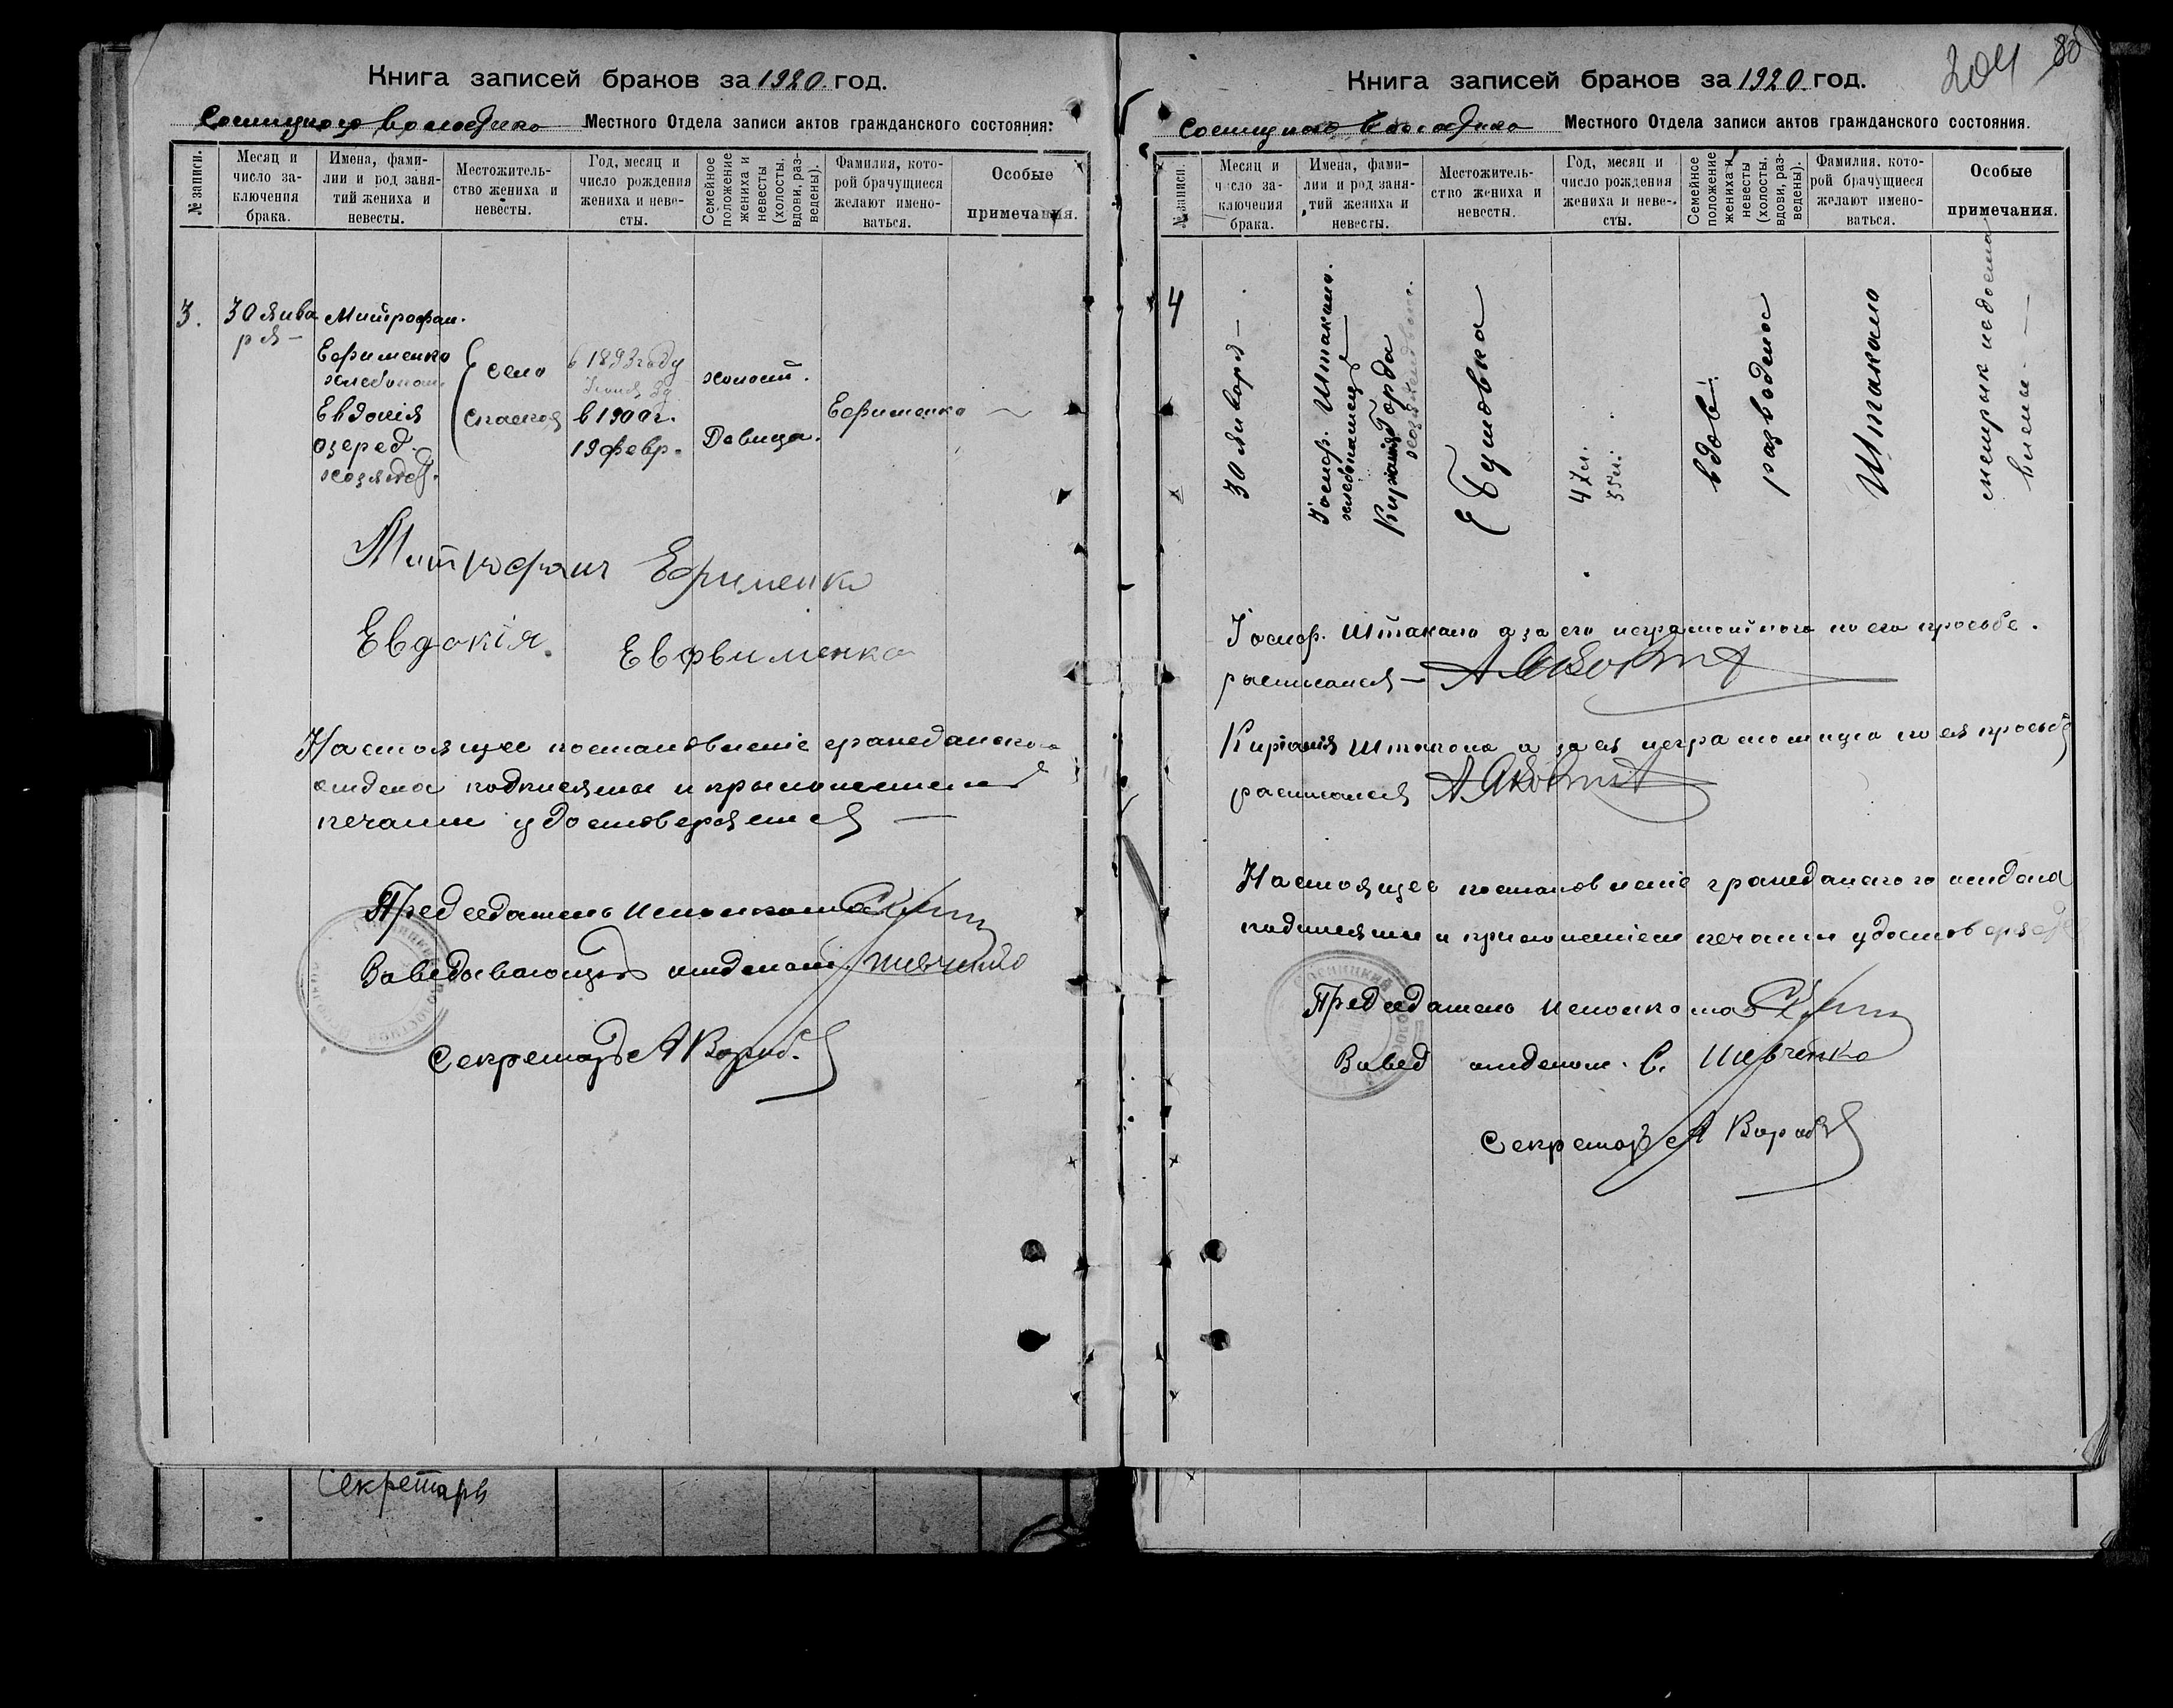 Книга записей браков за 1920 год.
Сосницкого волостного Местного Отдела записи актов гражданского состояния:
№ записи.
Месяц и число заключения брака.
Имена, фамилии и род занятий жениха и невесты.
Местожительство жениха и невесты.
Год, месяц и число рождения жениха и невесты.
Семейное положение жениха и невесты (холосты, вдовы, разведены).
Фамилия, которой брачущиеся желают именоваться.
Особые примечания.
3.
30 Января
Митрофан
Ефименко
хлебопаш.
Евдокія
Озеред.
село
Спаское
в 1893 году
в 1900 г.
19 февр.
холост.
Девица.
Ефименко
Митрофан Ефименко
Евдокія Евфвименко
Настоящее постановленіе гражданского
отдела подписями и приложением
печати удостоверяется —
Председатель исполкома
Заведывающій отделом Шевченко
Секретарь А
Секретарь
204 80
Книга записей браков за 1920 год.
Сосницкого волостного Местного Отдела записи актов гражданского состояния.
№ записи.
Месяц и число заключения брака.
Имена, фамилии и род занятий жениха и невесты.
Местожительство жениха и невесты.
Год, месяц и число рождения жениха и невесты.
Семейное положение жениха и невесты (холосты, вдовы, разведены).
Фамилия, которой брачущиеся желают именоваться.
Особые примечания.
4
30 Января —
Іосиф. Штакало
хлебопашец
Горда
47 л.
35 л.
вдов.
разводная
Штакало
Іосиф. Штакало а за его неграмотного по его просьбе
расписался —
Штакало а за ея неграмотную по ея просьбе
расписался
Настоящее постановленіе гражданского отдела
подписями и приложеніем печати удостоверяе
Председатель исполкома
Завед отделом. С. Шевченко
Секретарь А